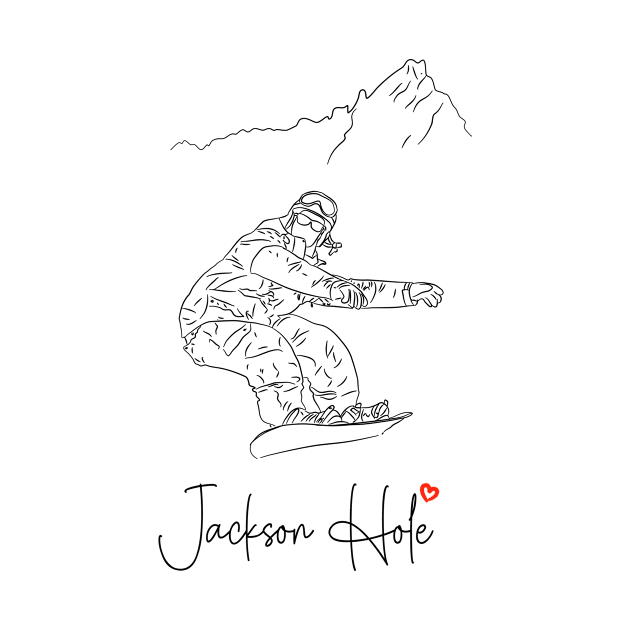 Jackson Hole